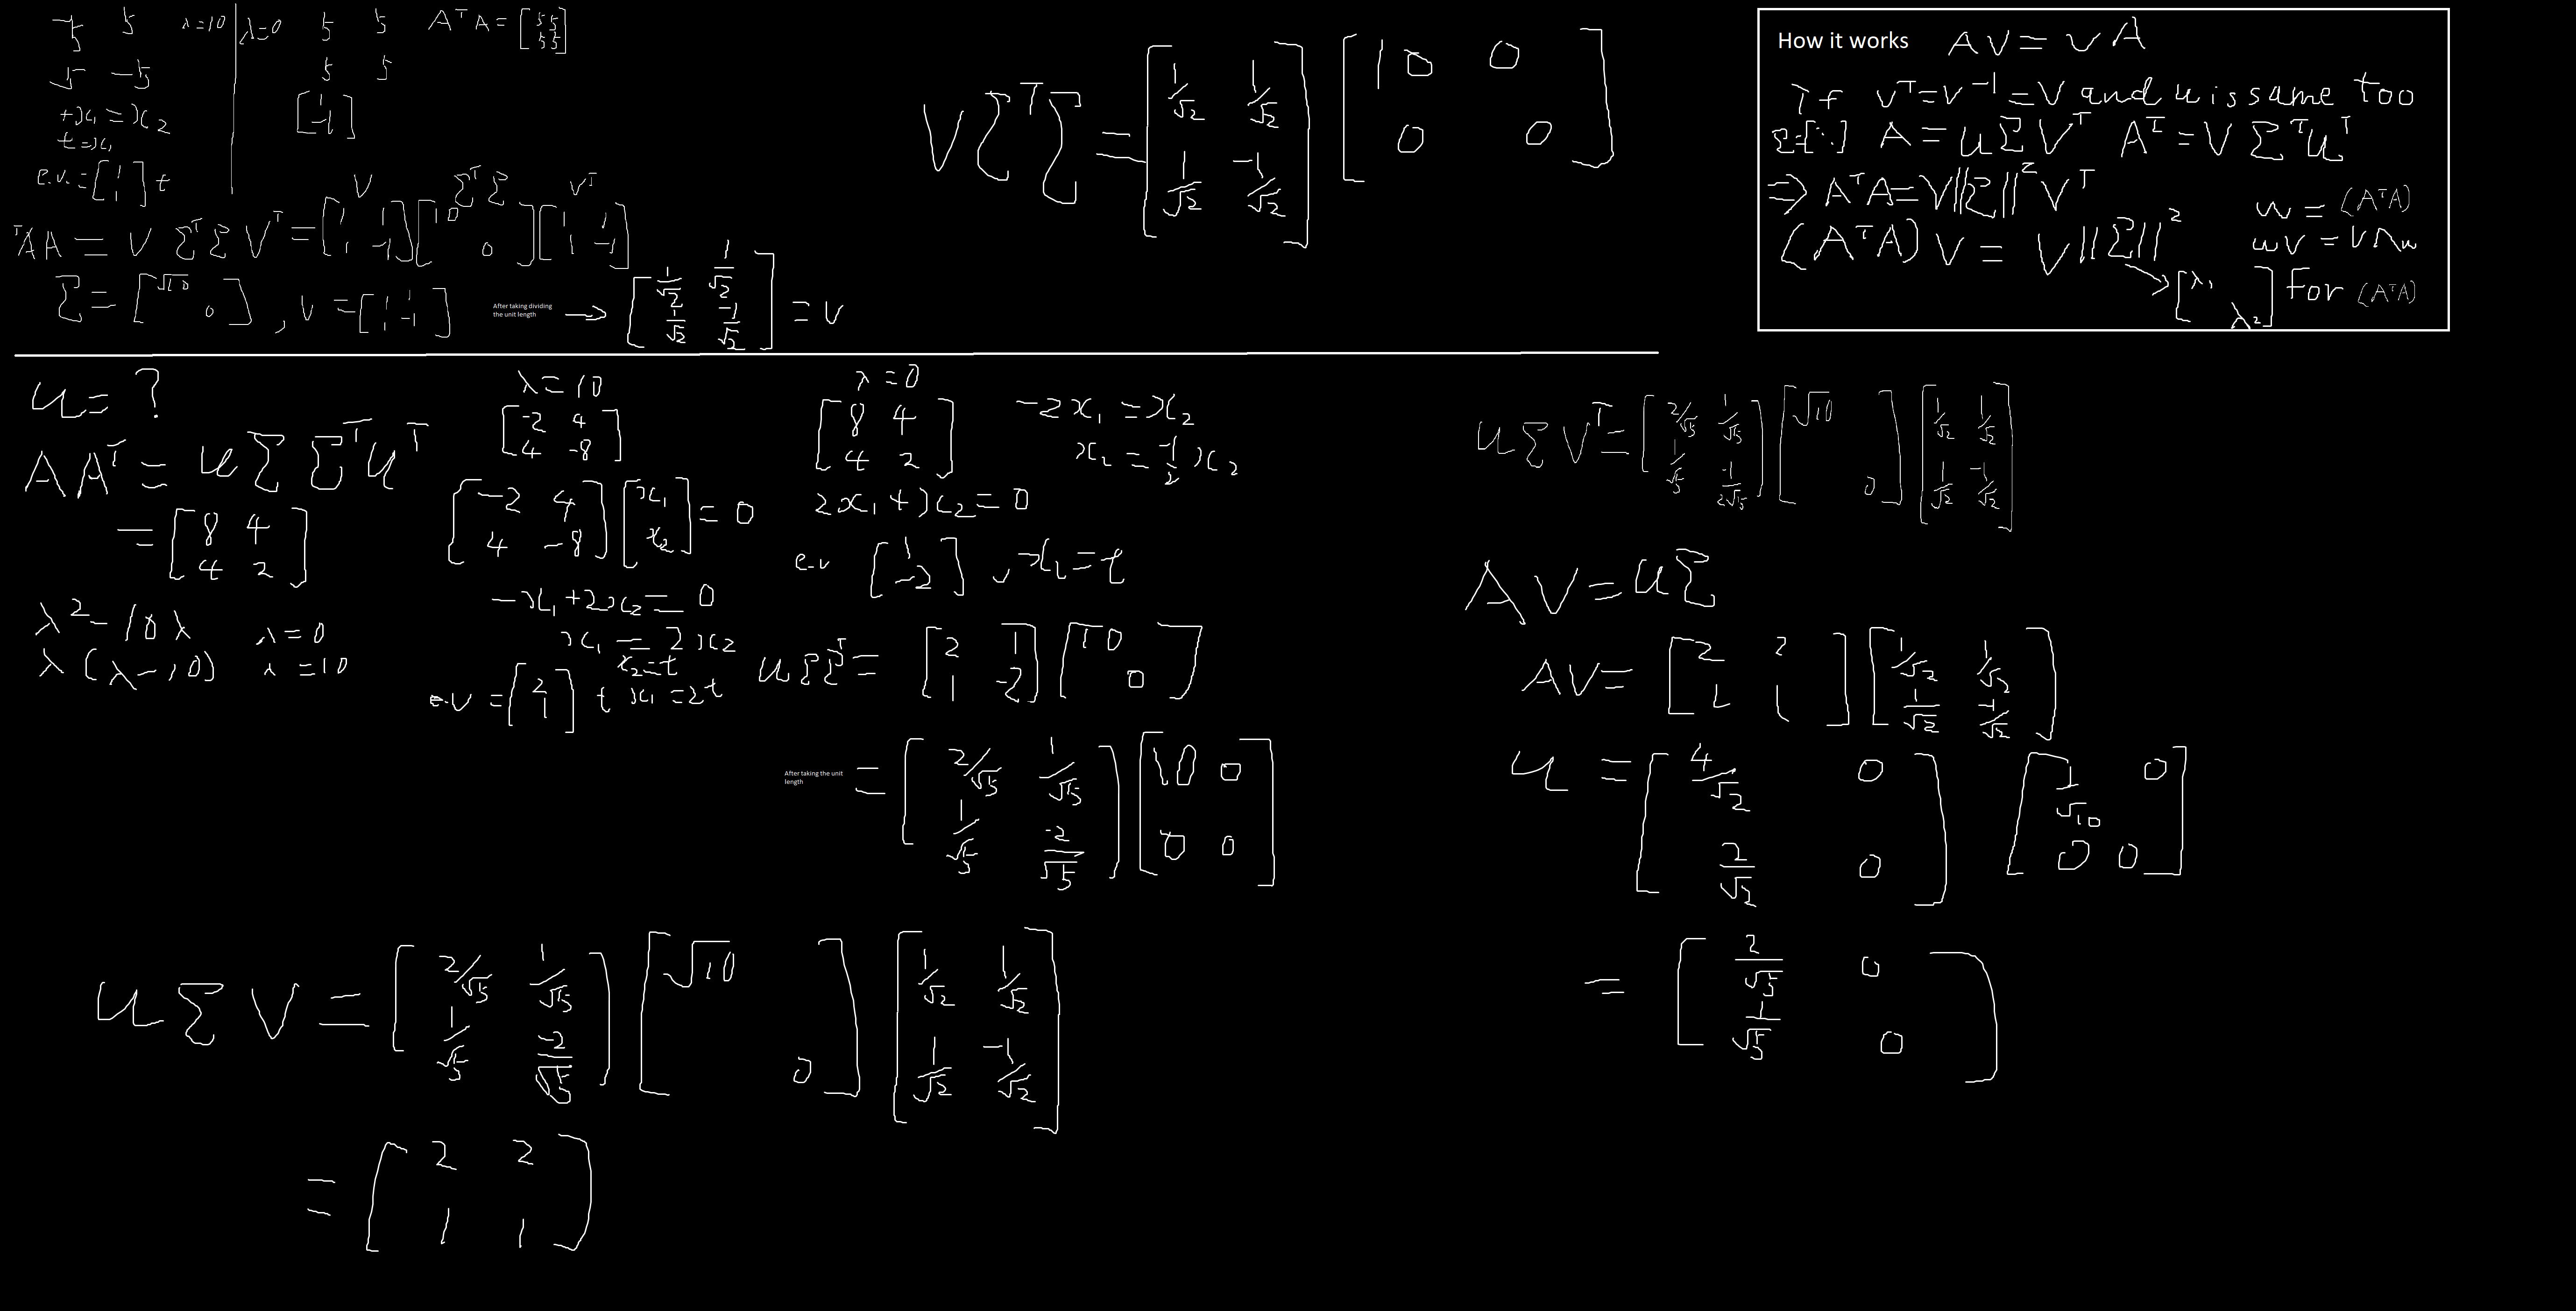 -5 5 λ=10 | λ=0 5 5 AᵀA = [5 5; 5 5]
5 -5 5 5
+x₁ = x₂ [1; -1]
t = x₁
e.v. = [1; 1] t
ᵀAA = V ΣᵀΣ Vᵀ = [1 1; 1 -1] [10 ; 0] [1 1; 1 -1]
V ΣᵀΣ Vᵀ
Σ = [√10 ; 0], v = [1 1; 1 -1]
After taking dividing
the unit length
→ [1/√2 1/√2; 1/√2 -1/√2] = v
VΣᵀΣ = [1/√2 1/√2; 1/√2 -1/√2] [10 0; 0 0]
How it works AV = VΛ
If Vᵀ=V⁻¹=V and u is same too
Σ=[⋱] A = uΣVᵀ Aᵀ = VΣᵀuᵀ
⇒ AᵀA = V||Σ||²Vᵀ
w = (AᵀA)
(AᵀA)V = V||Σ||²
wV = VΛw
→ [λ₁ ; λ²] for (AᵀA)
u = ?
AAᵀ = uΣΣᵀuᵀ
= [8 4; 4 2]
λ² - 10λ λ=0
λ(λ-10) λ=10
λ=10
[-2 4; 4 -8]
[-2 4; 4 -8] [x₁; x₂] = 0
-x₁+2x₂ = 0
x₁ = 2x₂
x₂=t
e.v = [2; 1] t x₁=2t
λ=0
[8 4; 4 2]
-2x₁ = x₂
x₂ = -1/2 x₂
2x₁+x₂ = 0
e.v [1; -2], x₁=t
uΣΣᵀ = [2 1; 1 -2] [10 ; 0]
After taking the unit
length
= [2/√5 1/√5; 1/√5 -2/√5] [10 0; 0 0]
uΣV = [2/√5 1/√5; 1/√5 -2/√5] [√10 ; 0] [1/√2 1/√2; 1/√2 -1/√2]
= [2 2; 1 1]
uΣVᵀ = [2/√5 1/√5; 1/√5 -1/2√5] [√10 ; 0] [1/√2 1/√2; 1/√2 -1/√2]
AV = uΣ
AV = [2 2; 1 1] [1/√2 1/√2; 1/√2 -1/√2]
u = [4/√2 0; 2/√2 0] [1/√10 0; 0 0]
= [2/√5 0; 1/√5 0]